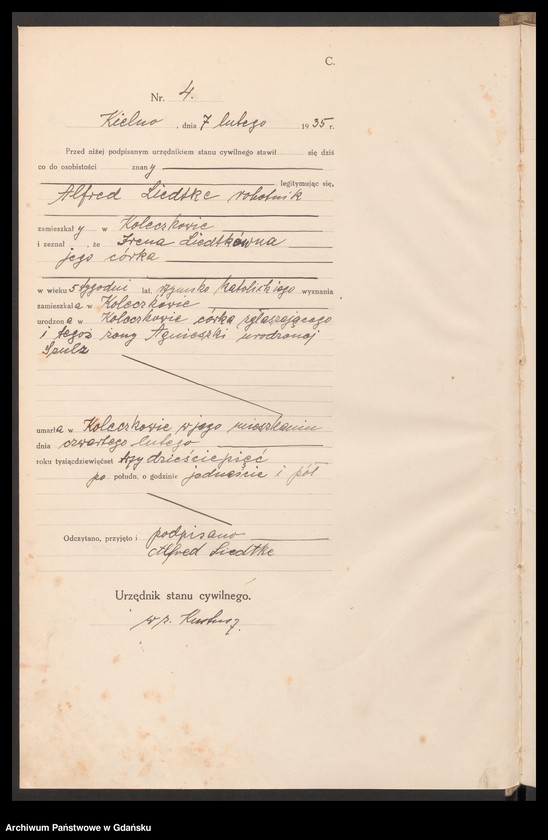 C.
Nr. 4.
Kielno, dnia 7 lutego 1935 r.
Przed niżej podpisanym urzędnikiem stanu cywilnego stawił się dziś
co do osobistości znany
legitymując się,
Alfred Liedtke robotnik
zamieszkały w Koleczkovic
i zeznał, że Irena Liedtkówna
jego córka
w wieku 5 tygodni lat, rzymsko katolickiego wyznania
zamieszkała w Koleczkovic
urodzona w Koleczkovic córka zgłaszającego
i tegoż żony Agnieszki urodzonej
umarła w Koleczkovic w jego mieszkaniu
dnia czwartego lutego
roku tysiącdziewięćset trzydzieściepięć
po połudn. o godzinie jedneście i pół
Odczytano, przyjęto i podpisano
Alfred Liedtke
Urzędnik stanu cywilnego.
w z.
Archiwum Państwowe w Gdańsku